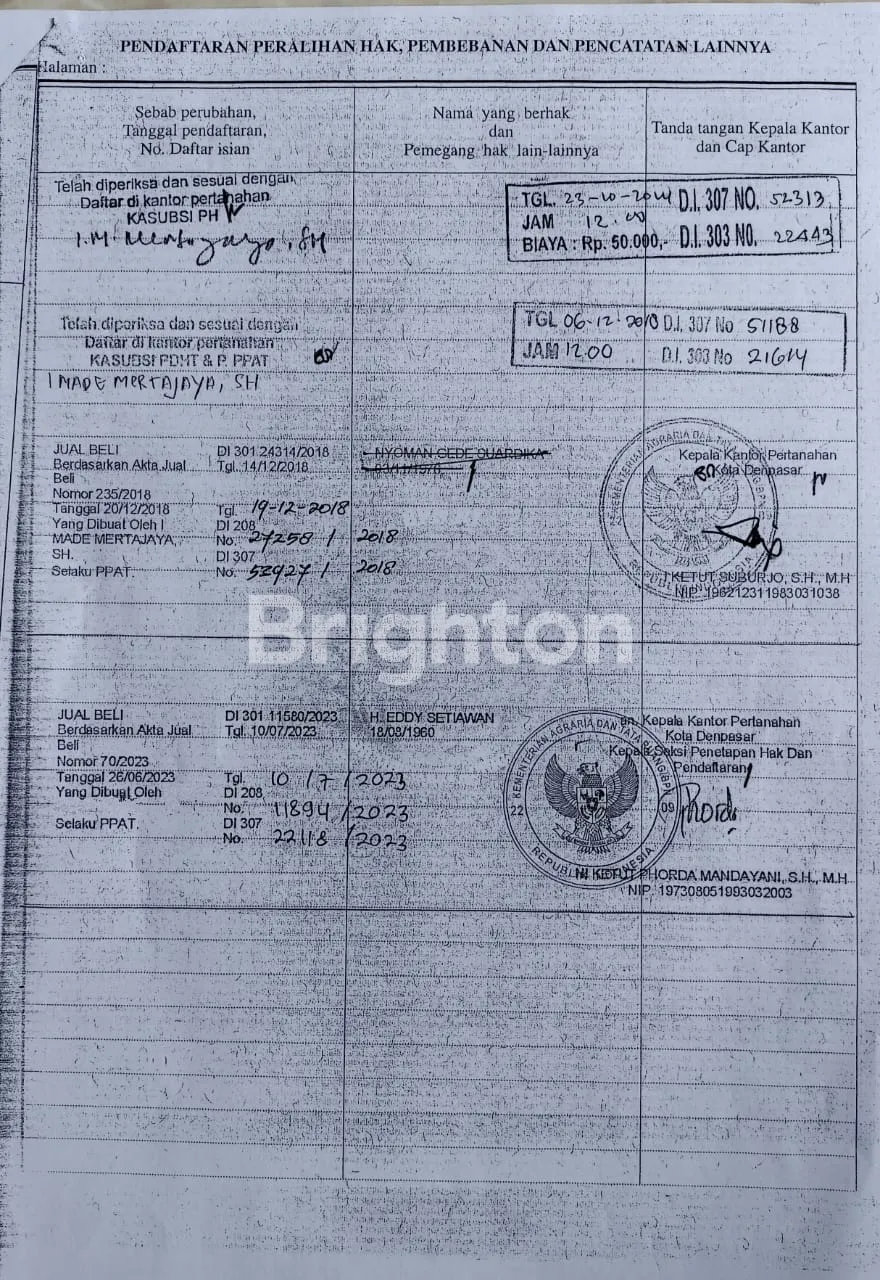 PENDAFTARAN PERALIHAN HAK, PEMBEBANAN DAN PENCATATAN LAINNYA
Halaman :
Sebab perubahan,
Tanggal pendaftaran,
No. Daftar isian
Nama yang berhak
dan
Pemegang hak lain-lainnya
Tanda tangan Kepala Kantor
dan Cap Kantor
Telah diperiksa dan sesuai dengan
Daftar di kantor pertanahan
KASUBSI PH
TGL. 23-10-2014 D.I. 307 NO. 52313
JAM 12.00
BIAYA : Rp. 50.000,- D.I. 303 NO. 22443
Telah diperiksa dan sesuai dengan
Daftar di kantor pertanahan
KASUBSI PDMT & P. PPAT
I MADE MERTAJAYA, SH
TGL 06-12-2018 D.I. 307 No 51188
JAM 12.00 D.I. 303 No 21614
JUAL BELI DI 301 24314/2018
Berdasarkan Akta Jual Tgl. 14/12/2018
Beli
Nomor 235/2018
Tanggal 20/12/2018 Tgl. 19-12-2018
Yang Dibuat Oleh I DI 208
MADE MERTAJAYA, No. 27258 / 2018
SH. DI 307
Selaku PPAT. No. 53927 / 2018
NYOMAN GEDE SUARDIKA
Kepala Kantor Pertanahan
Kota Denpasar
I KETUT SUBURJO, S.H., M.H
NIP. 196212311983031038
Brighton
JUAL BELI DI 301 11580/2023
Berdasarkan Akta Jual Tgl. 10/07/2023
Beli
Nomor 70/2023
Tanggal 26/06/2023 Tgl. 10 / 7 / 2023
Yang Dibuat Oleh DI 208
No. 11894 / 2023
Selaku PPAT. DI 307
No. 22118 / 2023
H. EDDY SETIAWAN
18/08/1960
an. Kepala Kantor Pertanahan
Kota Denpasar
Kepala Seksi Penetapan Hak Dan
Pendaftaran
KEMENTERIAN AGRARIA DAN TATA RUANG/BPN
22 09
REPUBLIK INDONESIA
NI KETUT PHORDA MANDAYANI, S.H., M.H
NIP. 197308051993032003